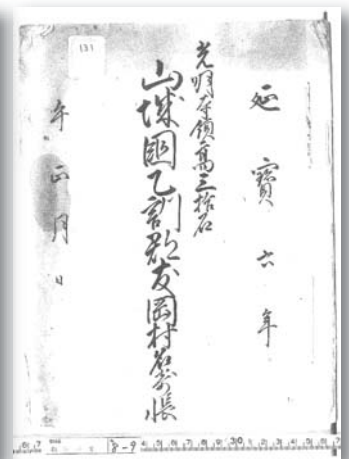 延寶六年
光明寺領高三拾石
山城國乙訓郡友岡村名寄帳
午正月日
131
8-9